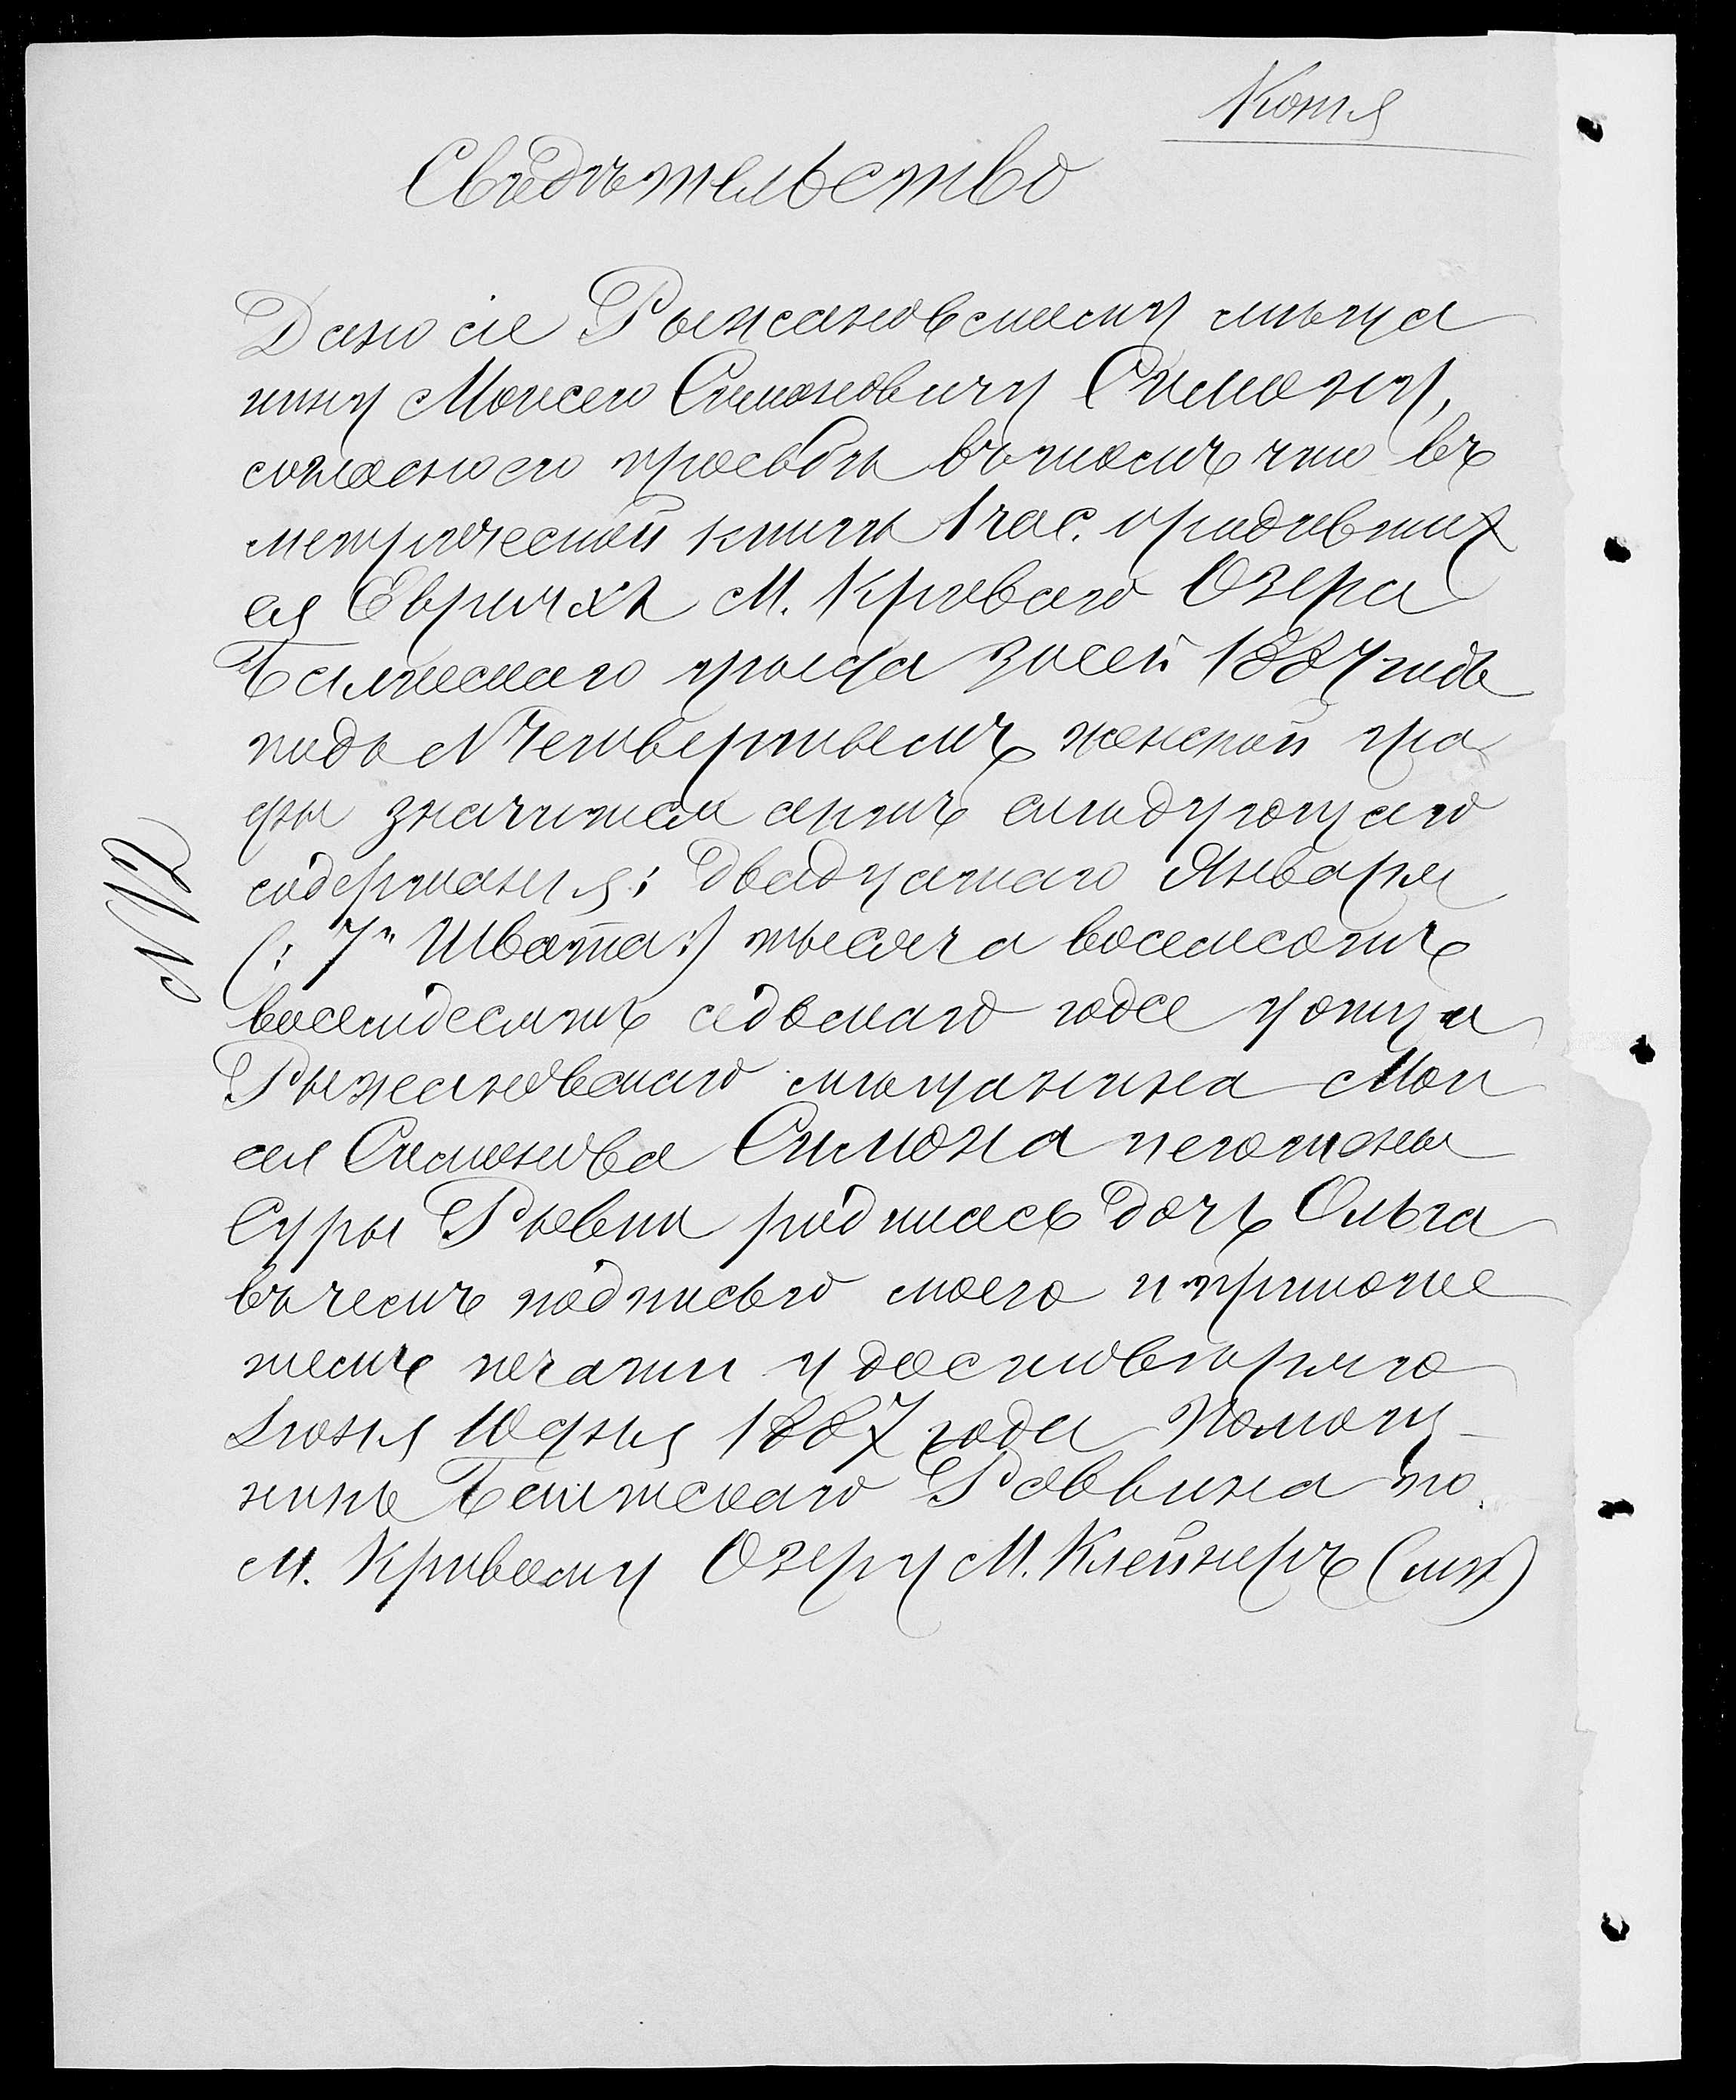 Копія
Свѣдѣтельство
Дано сіе Рыжановскому мѣща
нину Моисею Симоновичу Симону,
согласно его просьбы въ томъ что въ
метрической книги 1 час. о родивших
ся Евреяхъ М. Криваго Озера
Балтскаго уѣзда за сей 1887 годъ
подъ N Четвертымъ женской гра
фы значится актъ слѣдующаго
содержанія: двадцатаго Января
(: 7го Швата:) тысяча восемсотъ
восемдесятъ седьмаго года у отца
Рыжановскаго мѣщанина Мои
сея Симонова Симона и его жены
Суры Ривки родилась дочь Ольга
въ чемъ подписью моею и приложе
ніемъ печати удостовѣряю
Іюня 10 дня 1887 года Помощ-
никъ Балтскаго Раввина по
м. Кривому Озеру М. Клейнеръ (мп)
N 12